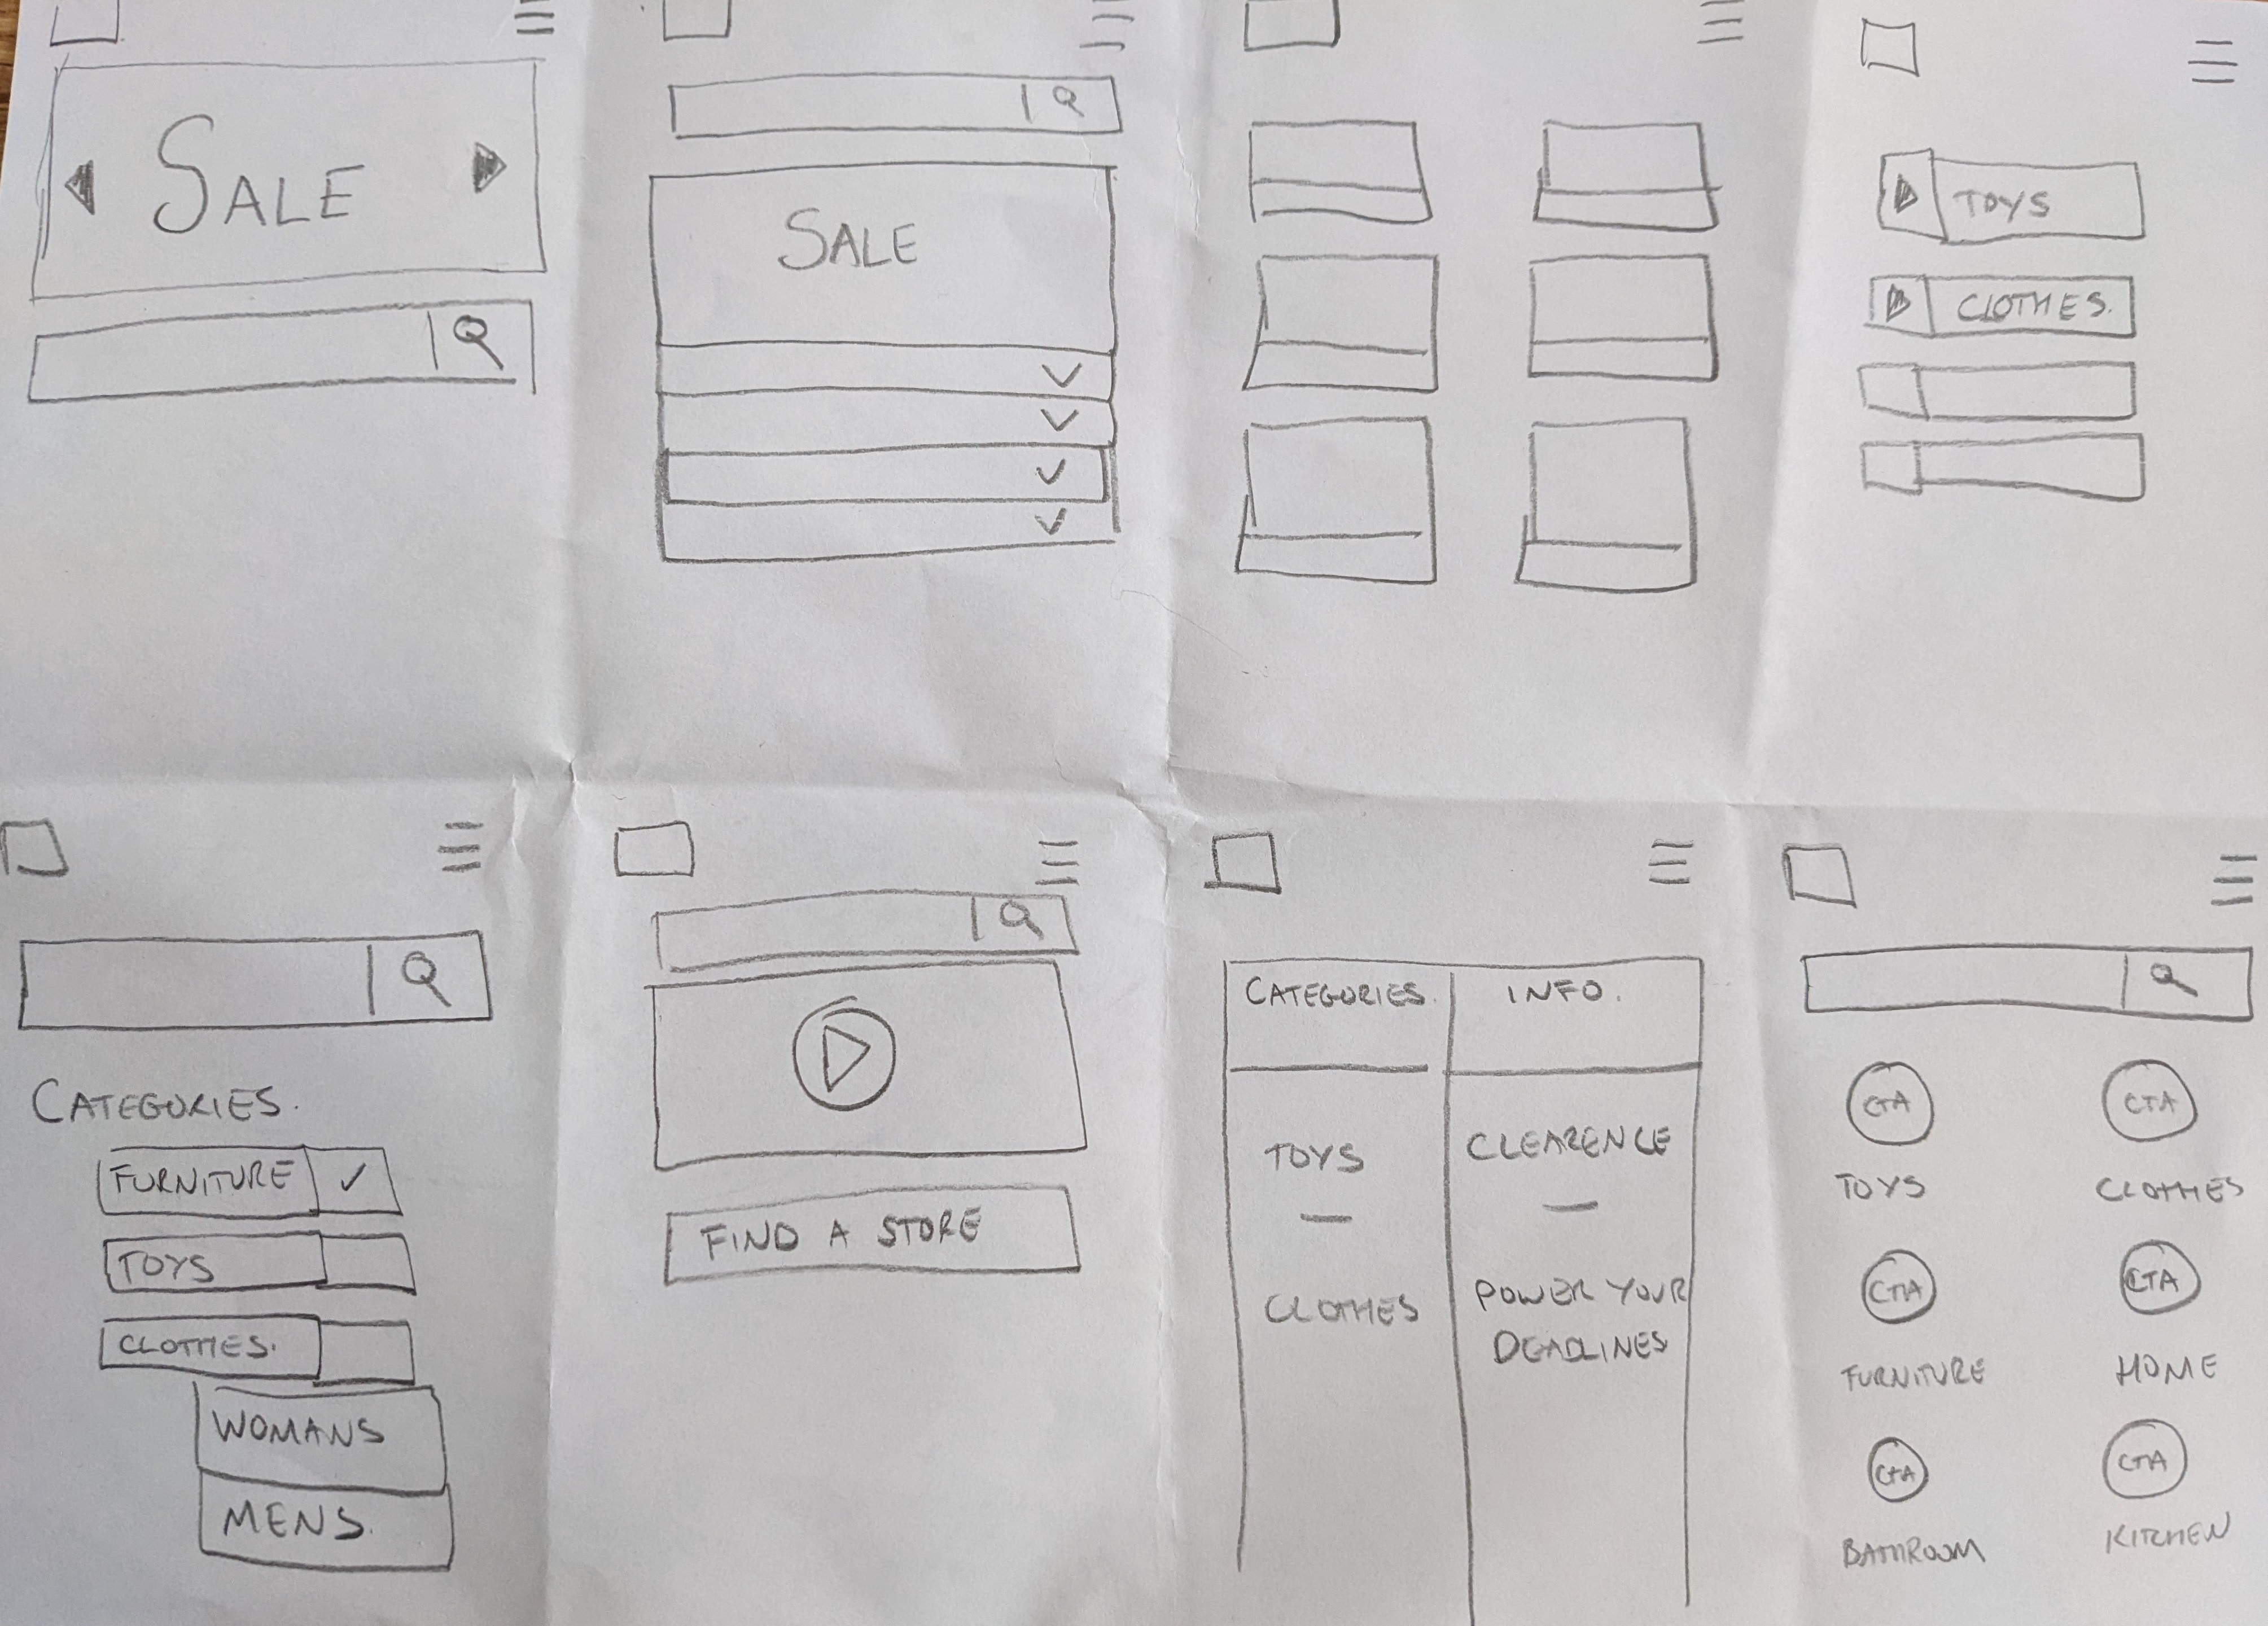 SALE
SALE
TOYS
CLOTHES.
CATEGORIES.
FURNITURE
TOYS
CLOTHES.
WOMANS
MENS.
FIND A STORE
CATEGORIES.
INFO.
TOYS
CLEARENCE
CLOTHES
POWER YOUR
DEADLINES
CTA
CTA
TOYS
CLOTHES
CTA
CTA
FURNITURE
HOME
CTA
CTA
BATHROOM
KITCHEN